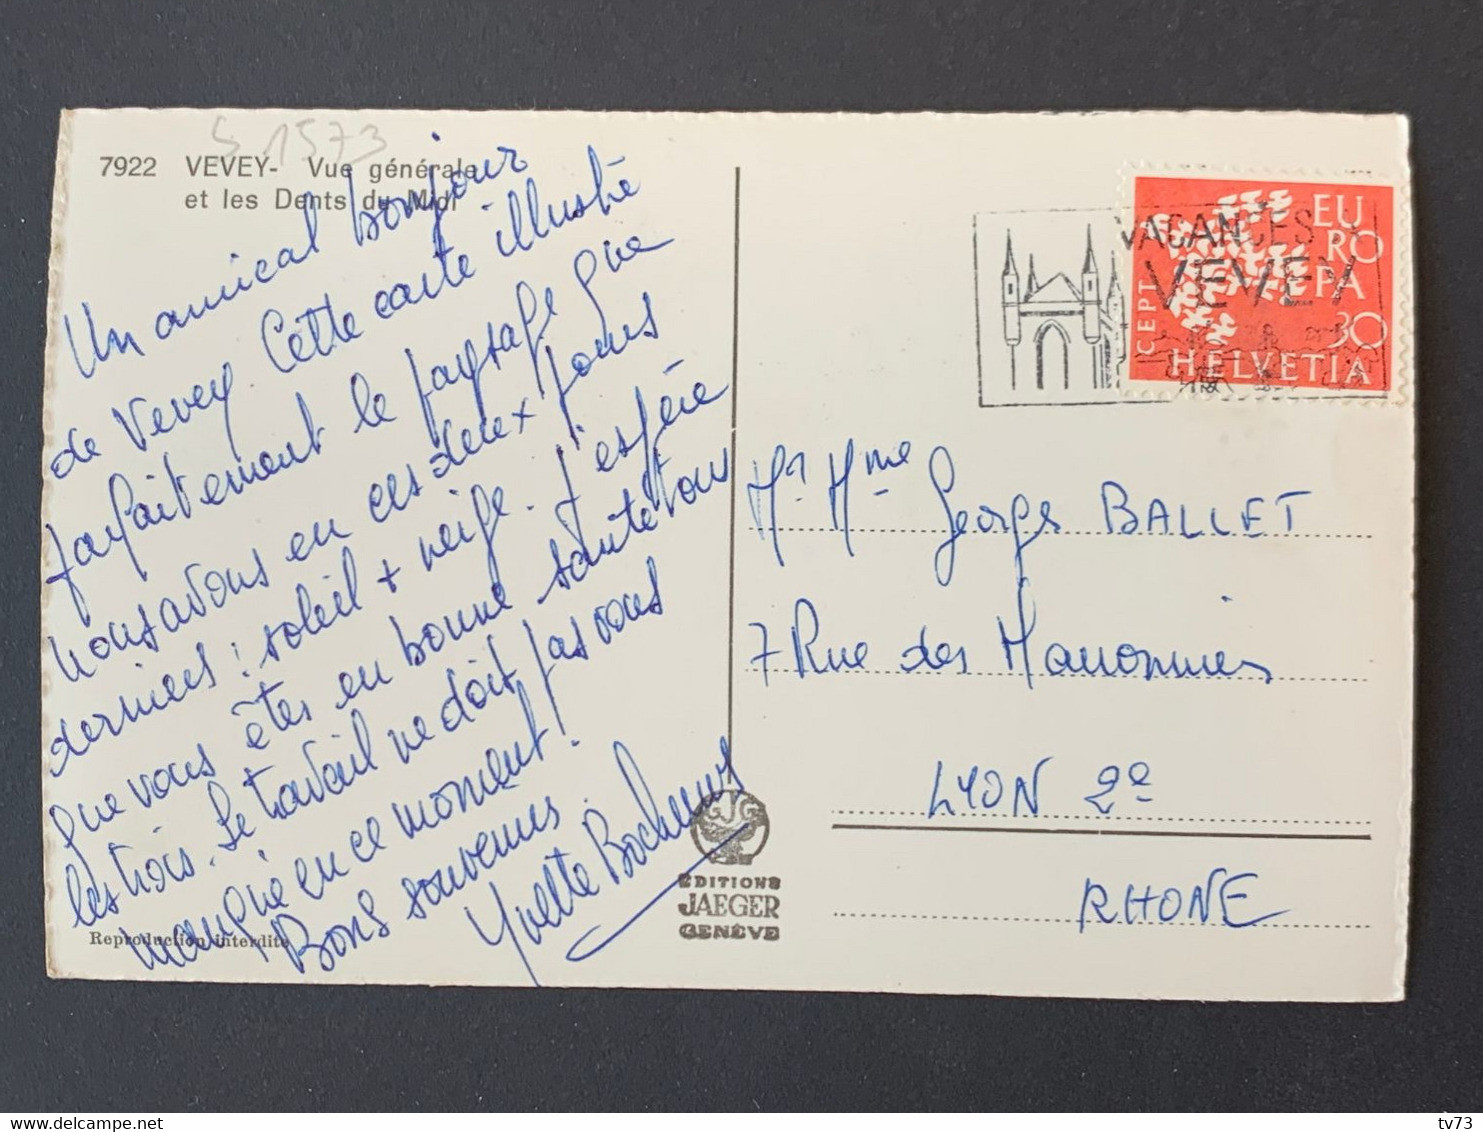 S 1573
7922 VEVEY- Vue générale
et les Dents du Midi
Un amical bonjour
de Vevey. Cette carte illustre
parfaitement le paysage que
nous avons eu ces deux jours
derniers : soleil + neige. J'espère
que vous êtes en bonne santé tous
les trois. Le travail ne doit pas vous
manquer en ce moment !
Bons souvenirs
Yvette
Reproduction interdite
GJG
EDITIONS
JAEGER
GENÈVE
VACANCES
VEVEY
EU
RO
PA
CEPT
30
HELVETIA
Mr Mme Georges BALLET
7 Rue des Marronniers
LYON 2e
RHONE
delcampe.net
tv73